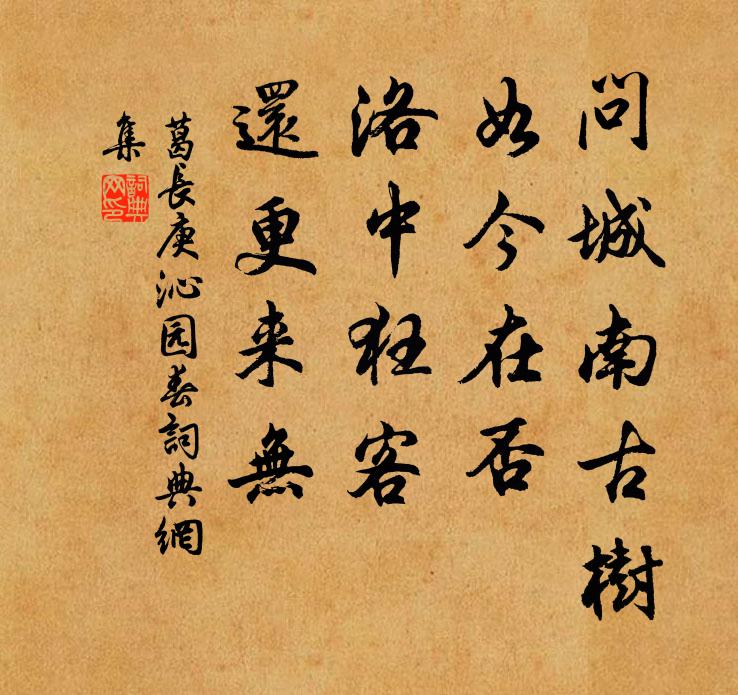 問城南古樹
如今在否
洛中狂客
還更来無
葛長庚沁园春詞典網
集
詞典
网印